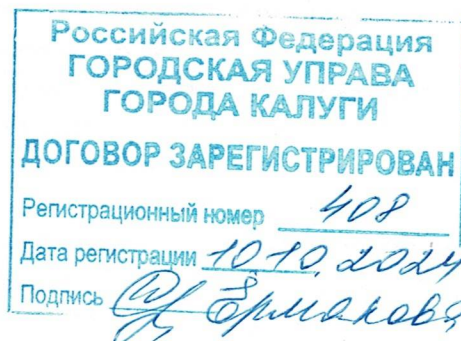 Российская Федерация
ГОРОДСКАЯ УПРАВА
ГОРОДА КАЛУГИ
ДОГОВОР ЗАРЕГИСТРИРОВАН
Регистрационный номер 408
Дата регистрации 10.10.2024
Подпись Ермакова